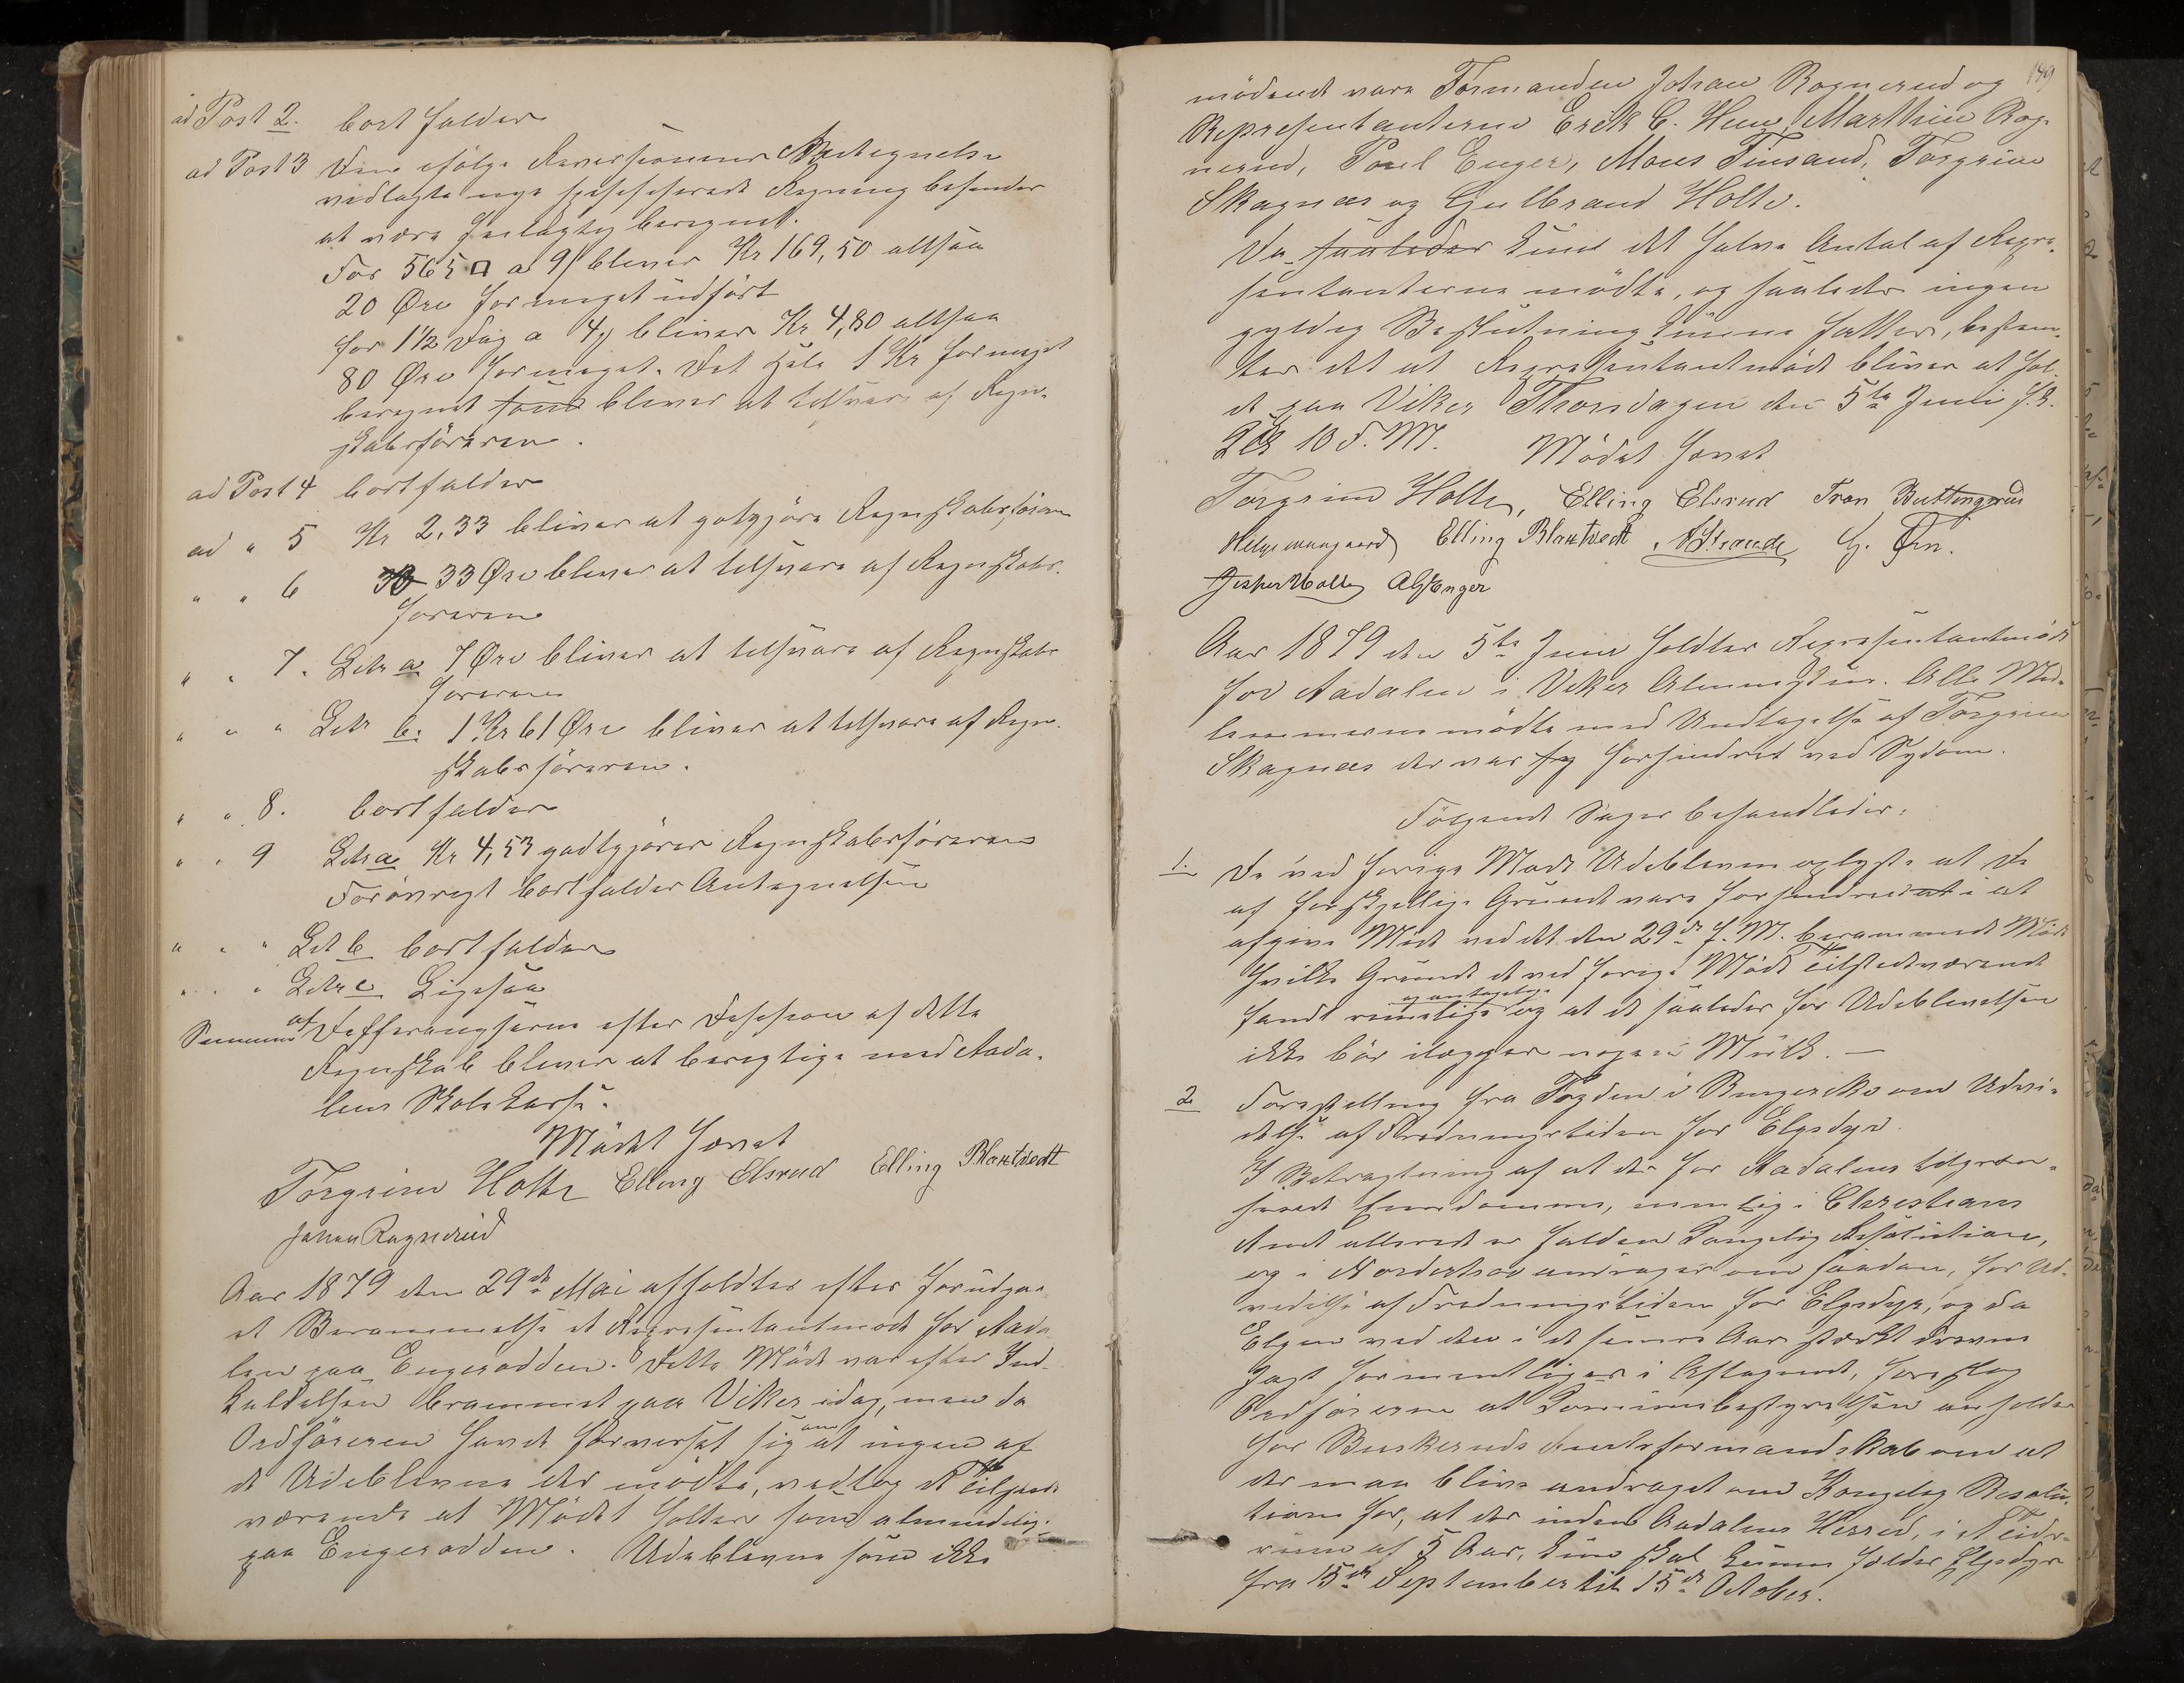 ad Post 2. bortfalder
ad Post 3 Den ifølge Revisionens Betegnelse
vedlagte nye specificerede Regning befindes
at være feilagtig beregnet.
For 565 □ a 9 bliver Kr 169,50 altsaa
20 Øre for meget udført
for 1½ Dag a 4 bliver Kr 4,80 altsaa
80 Øre for meget. Det hele 1 Kr for meget
beregnet som bliver at tilsvare af Regn-
skabsföreren.
ad Post 4 bortfalder
ad " 5 Kr 2,33 bliver at godtgjöre Regnskabsföreren
" " 6 33 Øre bliver at tilsvare af Regnskabs-
föreren
" " 7. Litr a 7 Øre bliver at tilsvare af Regnskabs
föreren
" " " Litr b. 1 Kr 61 Øre bliver at tilsvare af Regn-
skabsföreren.
" " 8. bortfalder
" " 9 Litr a Kr 4,53 godtgjöres Regnskabsföreren
Forövrigt bortfalder Antegnelsen
" " " Lit b bortfalder
" " " Litr c Ligesaa
Summen af Differentserne efter Decision af dette
Regnskab bliver at berigtige med Aada-
lens Skolekasse.
Mödet hævet
Torgrim Holte Elling Elsrud Elling Blaktvedt
Johan Rognerud
Aar 1879 den 29de Mai afholdtes efter forudgaa-
et Berammelse et Repræsentantmöde for Aada-
len paa Engerodden. Dette Möde var efter Ind-
kaldelsen berammet paa Viker idag, men da
Ordföreren havde forvisset sig om at ingen af
de Udeblevne der mödte, vedtog de Tilstede-
værende at Mödet holdes som almindelig
paa Engerodden. Udeblevne som ikke
149
mödende vare Formanden Johan Rognerud og
Repræsentanterne Erik C. Hen, Marthin Rog-
nerud, Poul Enger, Mons Finsand, Torgrim
Skagnæs og Gulbrand Holte.
Da saaledes kun det halve Antal af Repræ-
sentanterne mödte, og saaledes ingen
gyldig Beslutning kunne fattes, bestem-
tes det at Repræsentantmöde bliver at hol-
de paa Viker Thorsdagen den 5te Juni f. k.
Kl 10 F. M. Mödet hævet
Torgrim Holte, Elling Elsrud Iver Buttingsrud
Elling Blaktvedt, Strande G. Ørn.
Jesper Holte Enger
Aar 1879 den 5te Juni holdtes Repræsentantmöde
for Aadalen i Viker Almenning. Alle Med-
lemmerne mödte med Undtagelse af Torgrim
Skagnæs der var forhindret ved Sygdom.
Fölgende Sager behandledes:
1. De ved forrige Möde Udeblevne oplyste at de
af forskjellige Grunde vare forhindrede i at
afgive Möde ved det den 29de f. M. berammede Möde
hvilke Grunde de ved forrige Möde Tilstedeværende
fandt rimelige og antagelige og at de saaledes for Udeblivelsen
ikke bör ilægges nogen Mulkt. —
2. Forestilling fra Fogden i Ringerike om Udvi-
delse af Fredningstiden for Elgsdyr.
I Betragtning af at der for Aadalens tilgræn-
sende Eiendomme, nemlig i Christians
Amt allerede er falden Kongelig Resolution,
og i Norderhov andrages om saadan, for Ud-
videlse af Fredningstiden for Elgsdyr, og da
Elgen ved den i de senere Aar stærkt drevne
Jagt formentliges i Aftagende, foreslog
Ordföreren at Kommunebestyrelsen anholder
hos Buskeruds Amtsformandskab om at
der maa blive andraget om Kongelig Resolu-
tion for, at der inden Aadalens Herred, i et Tids-
rum af 5 Aar, kun skal kunne fældes Elgsdyr
fra 15de September til 15de October.